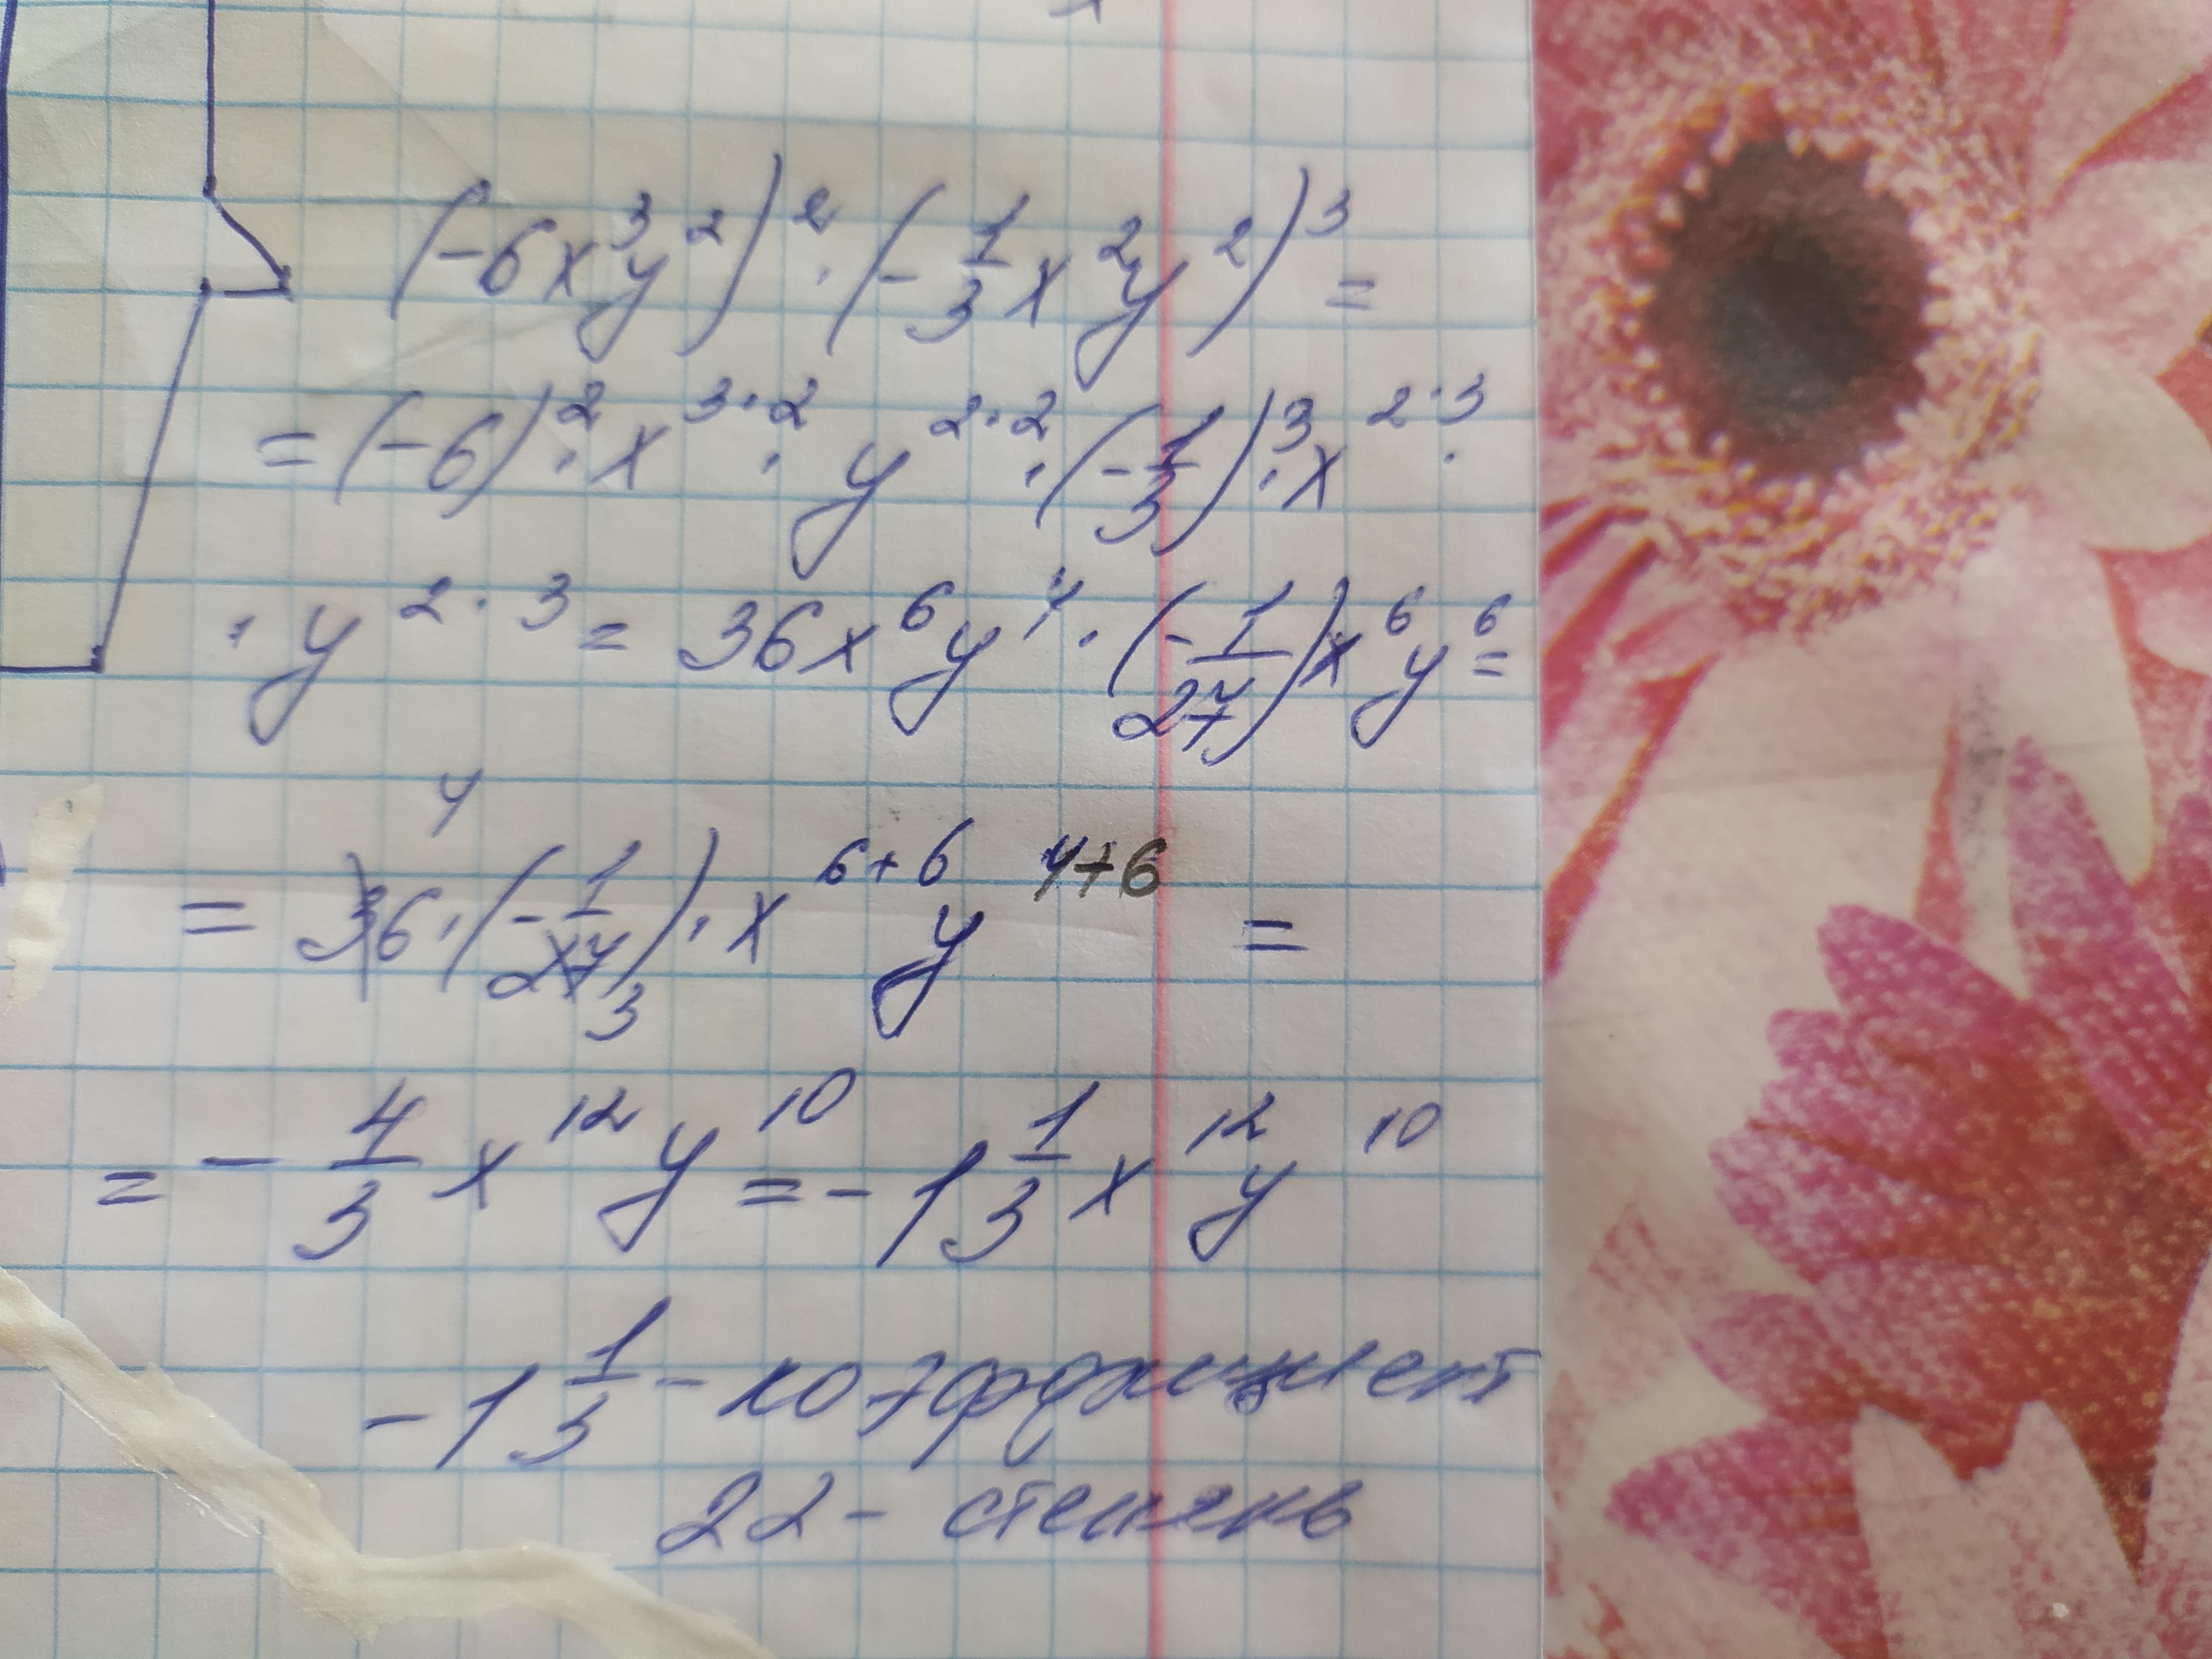 (-6x³y²)² · (-1/3 x²y²)³ =
= (-6)² · x³·² · y²·² · (-1/3)³ · x²·³ ·
· y²·³ = 36x⁶y⁴ · (-1/27)x⁶y⁶ =
4
= 36 · (-1/27) · x⁶⁺⁶ y⁴⁺⁶ =
3
= - 4/3 x¹² y¹⁰ = - 1 1/3 x¹² y¹⁰
- 1 1/3 - коэффициент
22 - степень